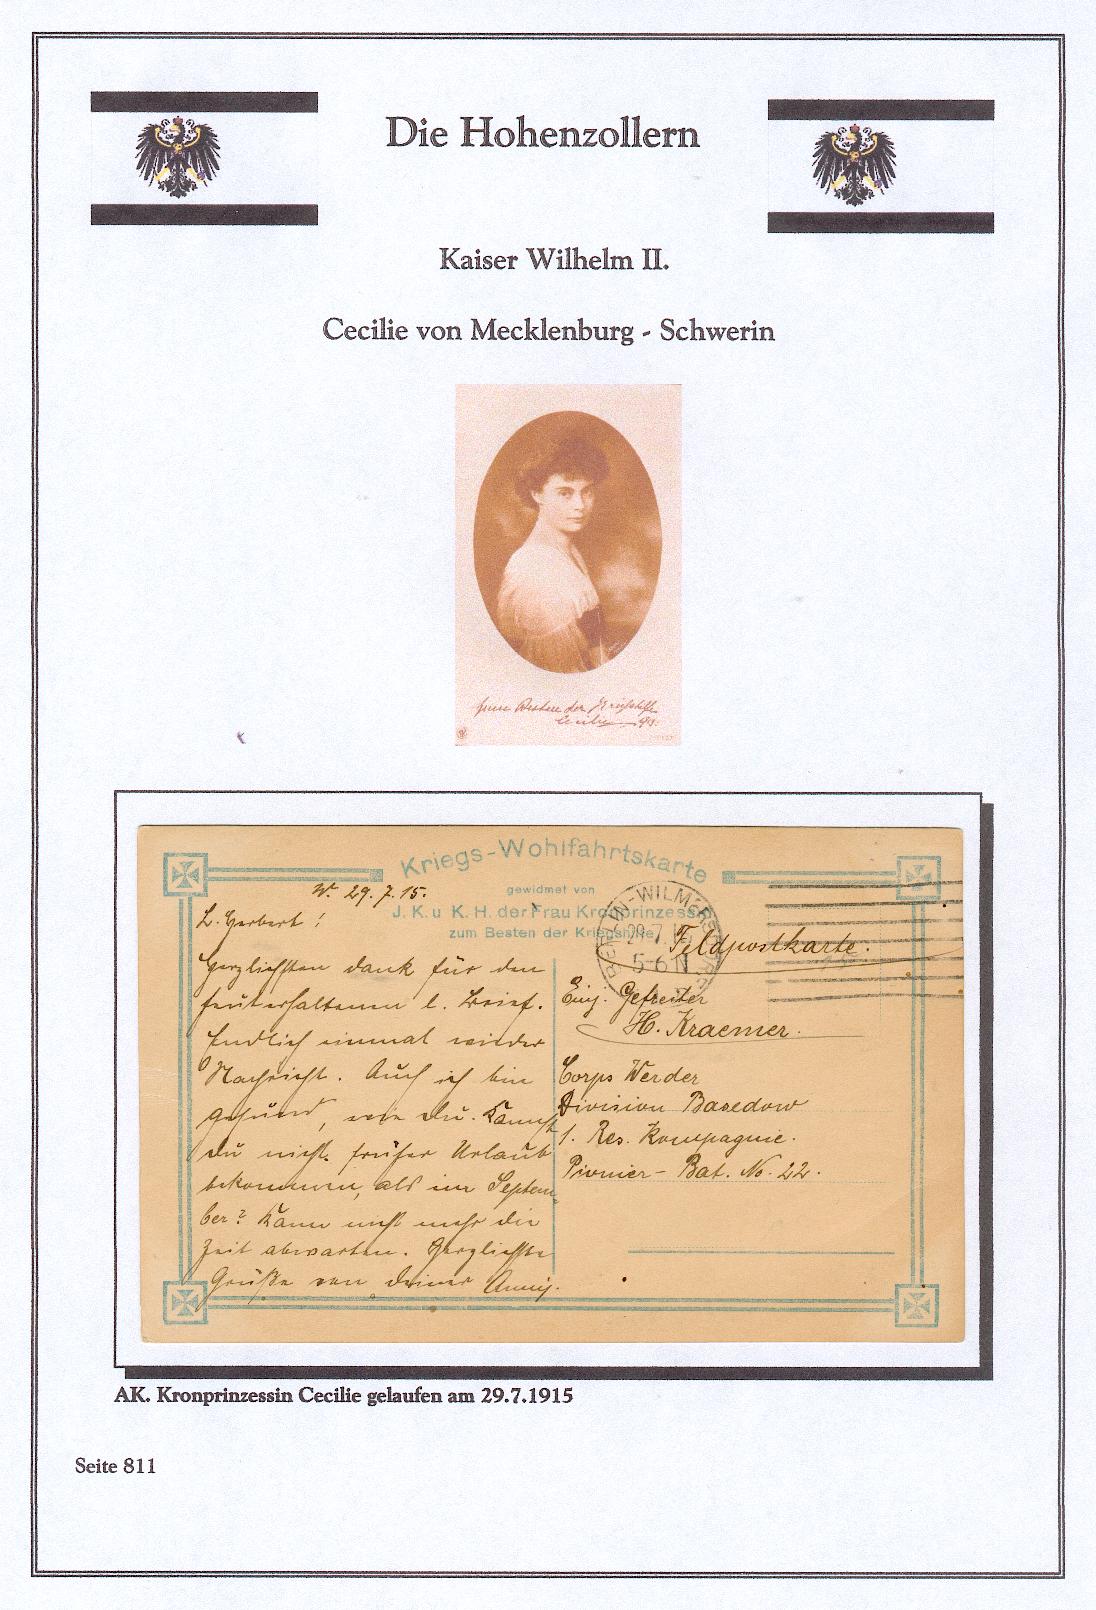 Die Hohenzollern
Kaiser Wilhelm II.
Cecilie von Mecklenburg - Schwerin
Besten der
Cecilie
Kriegs-Wohlfahrtskarte
gewidmet von
J. K. u K. H. der Frau Kronprinzessin
zum Besten der Kriegshilfe
BERLIN-WILMERSDORF
29.7.15
5-6 N
W. 29.7.15.
L. Herbert!
Herzlichsten Dank für den
heut erhaltenen l. Brief.
Endlich einmal wieder
Nachricht. Auch ich bin
gesund, wie Du. Kannst
Du nicht früher Urlaub
bekommen, als im Septem-
ber? Kann nicht mehr die
Zeit abwarten. Herzlichste
Grüße von Deiner Anny.
Feldpostkarte.
Einj. Gefreiter
H. Kraemer.
Corps Werder
Division Basedow
1. Res. Kompagnie.
Pionier-Bat. No. 22.
AK. Kronprinzessin Cecilie gelaufen am 29.7.1915
Seite 811